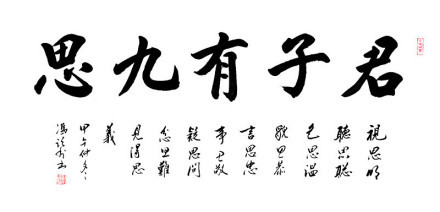 君子有九思
視思明
聽思聰
色思溫
貌思恭
言思忠
事思敬
疑思問
忿思難
見得思
義
甲午仲冬